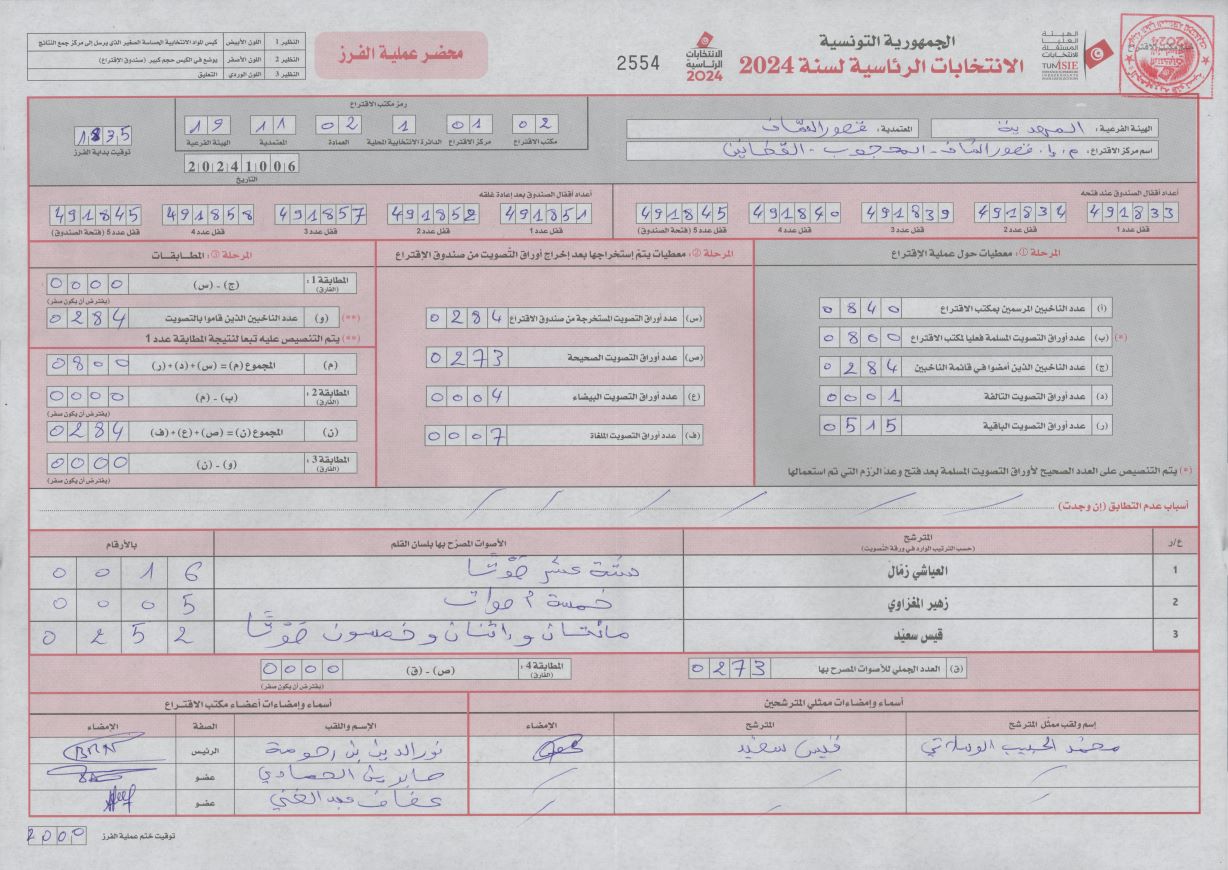 الجمهورية التونسية
الانتخابات الرئاسية لسنة 2024
الهيئة العليا المستقلة للانتخابات
TUNISIE
الانتخابات الرئاسية 2024
2554
محضر عملية الفرز
النظير 1 اللون الأبيض كيس المواد الانتخابية الحساسة الصغير الذي يرسل إلى مركز جمع النتائج
النظير 2 اللون الأصفر يوضع في الكيس حجم كبير (صندوق الإقتراع)
النظير 3 اللون الوردي التعليق
الهيئة الفرعية : المهدية
المعتمدية : قصور الساف
اسم مركز الاقتراع : م.إ. قصور الساف - المحجوب - القطاين
رمز مكتب الاقتراع
02 01 1 02 11 19
مكتب الاقتراع مركز الاقتراع الدائرة الانتخابية المحلية العمادة المعتمدية الهيئة الفرعية
20241006
التاريخ
1835
توقيت بداية الفرز
أعداد أقفال الصندوق عند فتحه
491833 491834 491839 491840 491845
قفل عدد 1 قفل عدد 2 قفل عدد 3 قفل عدد 4 قفل عدد 5 (فتحة الصندوق)
أعداد أقفال الصندوق بعد إعادة غلقه
491851 491852 491857 491858 491845
قفل عدد 1 قفل عدد 2 قفل عدد 3 قفل عدد 4 قفل عدد 5 (فتحة الصندوق)
المرحلة ①: معطيات حول عملية الإقتراع
(أ) عدد الناخبين المرسمين بمكتب الاقتراع 0840
(*) (ب) عدد أوراق التصويت المسلمة فعليا لمكتب الاقتراع 0800
(ج) عدد الناخبين الذين أمضوا في قائمة الناخبين 0284
(د) عدد أوراق التصويت التالفة 0001
(ر) عدد أوراق التصويت الباقية 0515
(*) يتم التنصيص على العدد الصحيح لأوراق التصويت المسلمة بعد فتح وعد الرزم التي تم استعمالها
المرحلة ②: معطيات يتم إستخراجها بعد إخراج أوراق التصويت من صندوق الإقتراع
(س) عدد أوراق التصويت المستخرجة من صندوق الاقتراع 0284
(ص) عدد أوراق التصويت الصحيحة 0273
(ع) عدد أوراق التصويت البيضاء 0004
(ف) عدد أوراق التصويت الملغاة 0007
المرحلة ③: المطابقات
المطابقة 1 : (الفارق) (ج) - (س) 0000
(يفترض أن يكون صفر)
(**) (و) عدد الناخبين الذين قاموا بالتصويت 0284
(**) يتم التنصيص عليه تبعا لنتيجة المطابقة عدد 1
(م) المجموع (م) = (س)+(د)+(ر) 0800
المطابقة 2 : (الفارق) (ب) - (م) 0000
(يفترض أن يكون صفر)
(ن) المجموع (ن) = (ص)+(ع)+(ف) 0284
المطابقة 3 : (الفارق) (و) - (ن) 0000
(يفترض أن يكون صفر)
أسباب عدم التطابق (إن وجدت)
ع/ر المترشح (حسب الترتيب الوارد في ورقة التصويت) الأصوات المصرّح بها بلسان القلم بالأرقام
1 العياشي زمّال ستة عشر صوتا 0016
2 زهير المغزاوي خمسة أصوات 0005
3 قيس سعيّد مائتان وإثنان وخمسون صوتا 0252
(ق) العدد الجملي للأصوات المصرح بها 0273
المطابقة 4 : (الفارق) (ص) - (ق) 0000
(يفترض أن يكون صفر)
أسماء وإمضاءات ممثلي المترشحين
إسم ولقب ممثل المترشح المترشح الإمضاء
قيس سعيد
أسماء وإمضاءات أعضاء مكتب الاقتراع
الإسم واللقب الصفة الإمضاء
نور الدين بن رحومة الرئيس BRN
عضو
عفاف عبد الغني عضو
توقيت ختم عملية الفرز 2000